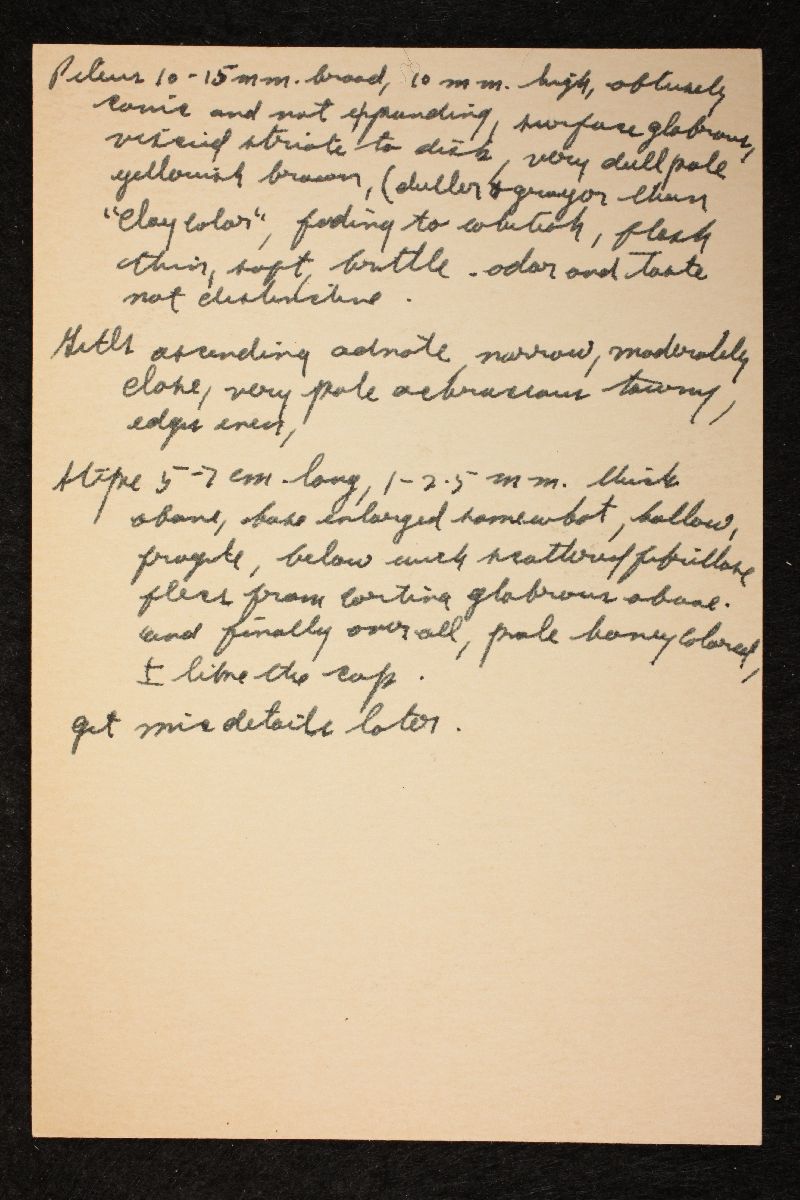 Pileus 10-15 mm. broad, 10 mm. high, obtusely
conic and not expanding, surface glabrous,
viscid striate to disk, very dull pale
yellowish brown, (duller & grayer than
"Clay color", fading to whitish, flesh
thin, soft, brittle. odor and taste
not distinctive.
Gills ascending adnate, narrow, moderately
close, very pale ochraceous tawny,
edges even,
stipe 5-7 cm. long, 1-2.5 mm. thick
above, base enlarged somewhat, hollow,
fragile, below with scattered fibrillose
flecs from cortina glabrous above.
and finally over all, pale honey colored,
± like the cap.
get mic details later.